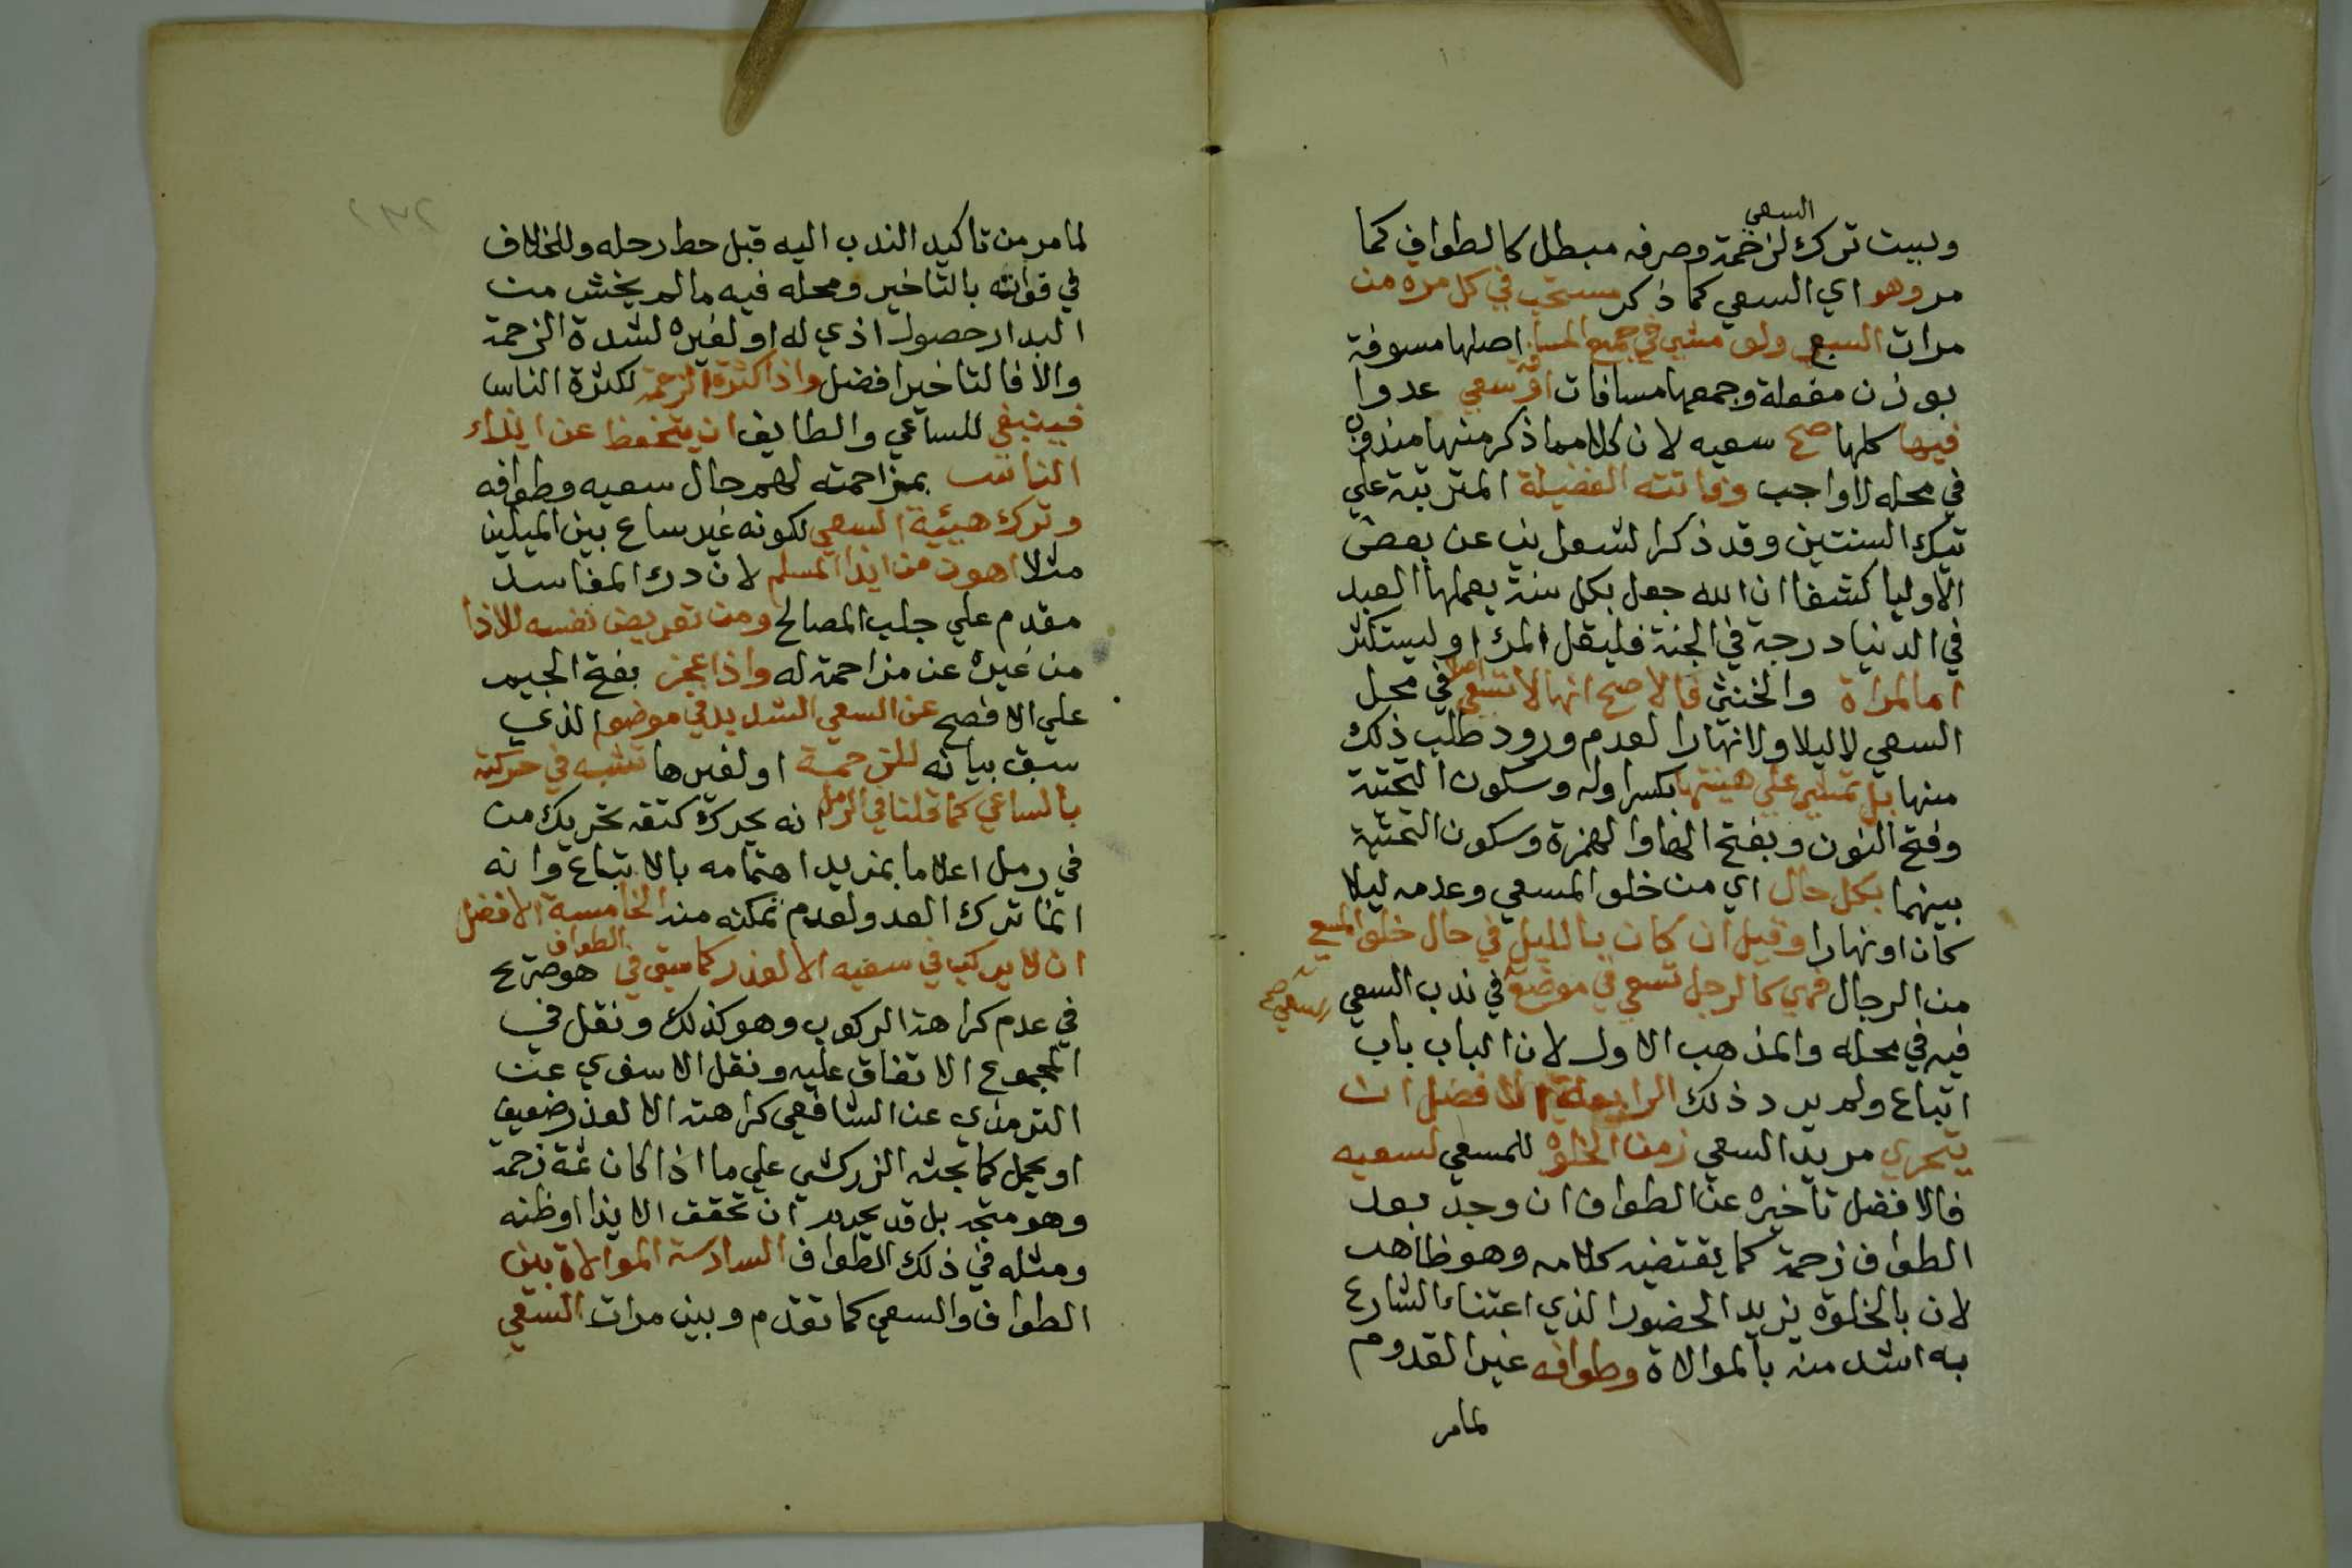 السعي
وبيت ترك لزحمة وصرفه مبطل كالطواف كما
مر وهو اي السعي كما ذكر مستحب في كل مرة من
مرات السبع ولو مشي في جميع المسافة اصلها مسوفة
بوزن مفعلة وجمعها مسافات او سعي عدوا
فيها كلها صح سعيه لان كلا مما ذكر منها مندوب
في محله لا واجب وفاتته الفضيلة المترتبة علي
تيك السنتين وقد ذكر الشعراني عن بعض
الاوليا كشفا ان الله جعل بكل سنة يعملها العبد
في الدنيا درجة في الجنة فليقل المرء او ليستكثر
اما المراة والخنثي فالاصح انها لا تسعي اصلا في محل
السعي لا ليلا ولا نهارا لعدم ورود طلب ذلك
منها بل تمشي علي هينتها بكسر اوله وسكون التحتية
وفتح النون وبفتح الها والهمزة وسكون التحتية
بينهما بكل حال اي من خلو المسعي وعدمه ليلا
كان او نهارا وقيل ان كان بالليل في حال خلو المسعي
من الرجال فهي كالرجل تسعي في موضع في ندب السعي
السعي صح
فيه في محله والمذهب الاول لان الباب باب
اتباع ولم يرد ذلك الرابعة الافضل ان
يتحري مريد السعي زمن الخلوة للمسعي لسعيه
فالافضل تاخيره عن الطواف ان وجد بعد
الطواف زحمة كما يقتضيه كلامه وهو ظاهر
لان بالخلوة يزيد الحضور الذي اعتناء الشارع
به اشد منه بالموالاة وطوافه غير القدوم
لمامر
لمامر من تاكيد الندب اليه قبل حط رحله وللخلاف
في فواته بالتاخير ومحله فيه مالم يخش من
البدار حصول اذي له او لغيره لشدة الزحمة
والا فالتاخير افضل واذا كثرة الزحمة لكثرة الناس
فينبغي للساعي والطايف ان يتحفظ عن ايذاء
الناس بمزاحمته لهم حال سعيه وطوافه
وترك هيئة السعي لكونه غير ساع بين الميلين
مثلا اهون من ايذا المسلم لان درء المفاسد
مقدم علي جلب المصالح ومن تعريض نفسه للاذا
من غيره عن مزاحمة له واذا عجز بفتح الجيم
علي الافصح عن السعي الشديد في موضع الذي
سبق بيانه للزحمة او لغيرها تشبه في حركته
بالساعي كما قلنا في الرمل انه يحرك كتفه تحريك من
في رمل اعلاما بمزيد اهتمامه بالاتباع وانه
انما ترك العدو لعدم تمكنه منه الخامسة الافضل
ان لا يركب في سعيه الا لعذر كما سبق في الطواف هو صريح
في عدم كراهة الركوب وهو كذلك ونقل في
المجموع الاتفاق عليه ونقل الاسنوي عن
الترمذي عن الشافعي كراهته الا لعذر ضعيف
او يحمل كما بحثه الزركشي علي ما اذا كان ثمة زحمة
وهو متجه بل قد يحرم ان تحقق الايذا او ظنه
ومثله في ذلك الطواف السادسة الموالاة بين
الطواف والسعي كما تقدم وبين مرات السعي